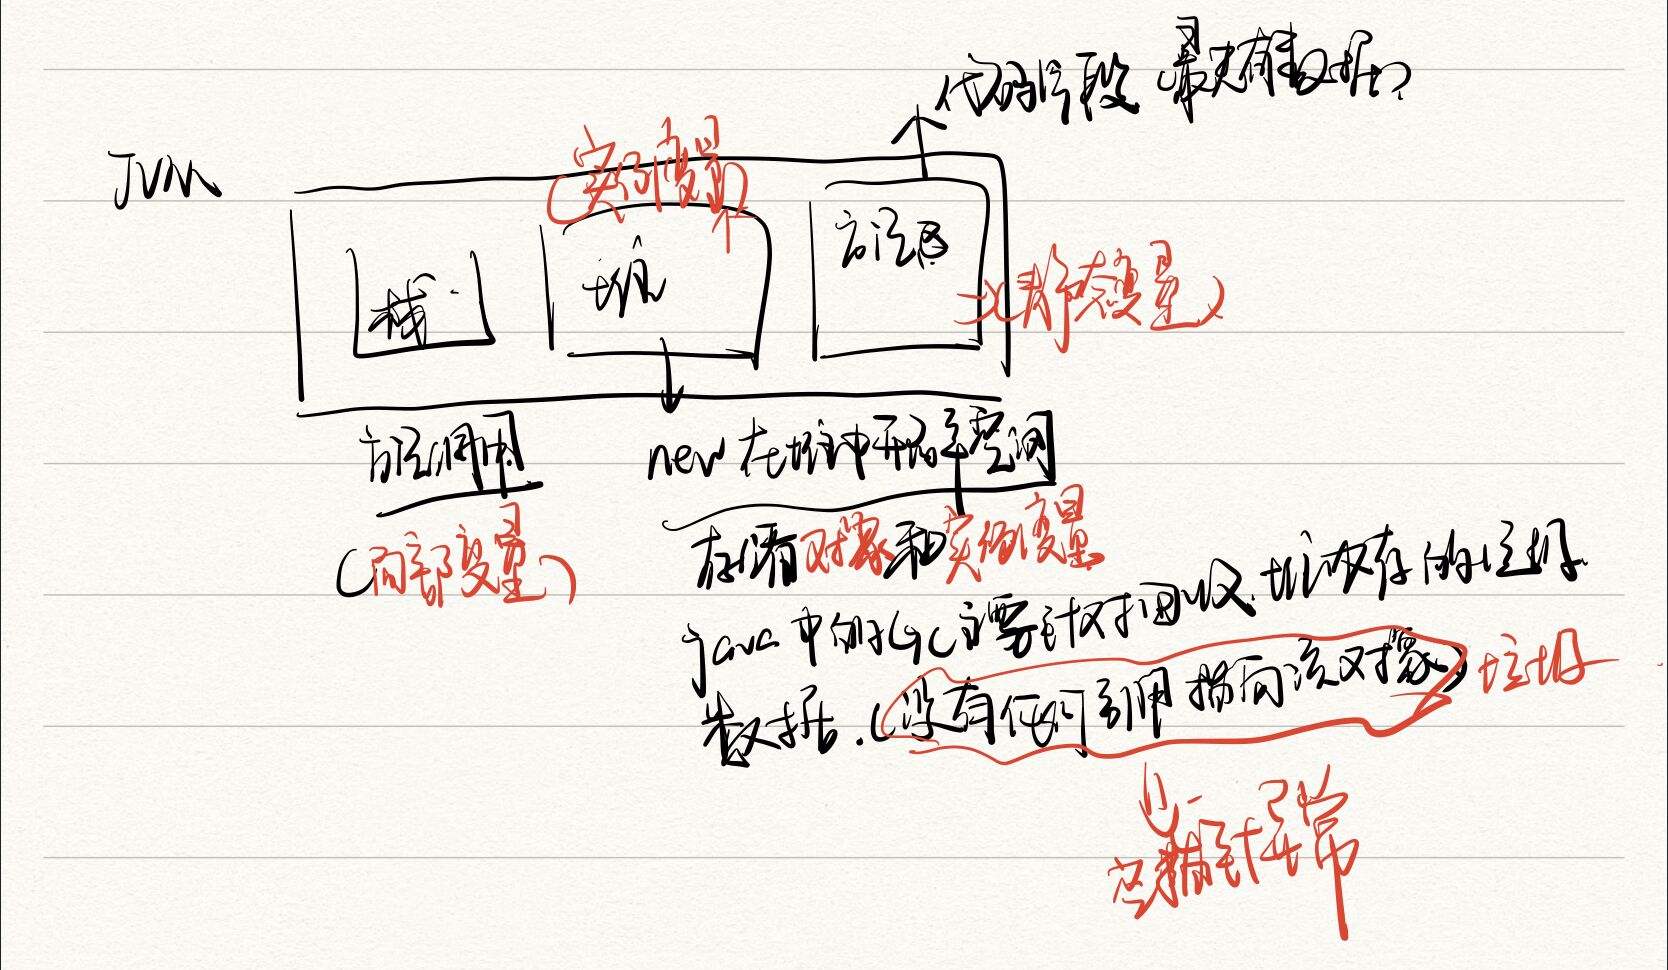 代码片段 最先有数据?
JVM
(实例变量)
栈
堆
方法区
(静态变量)
方法调用
new 在堆中开辟空间
(局部变量)
存储着对象和实例变量
java中的GC主要针对回收.堆内存的垃圾
数据.(没有任何引用指向该对象) 垃圾
空指针异常